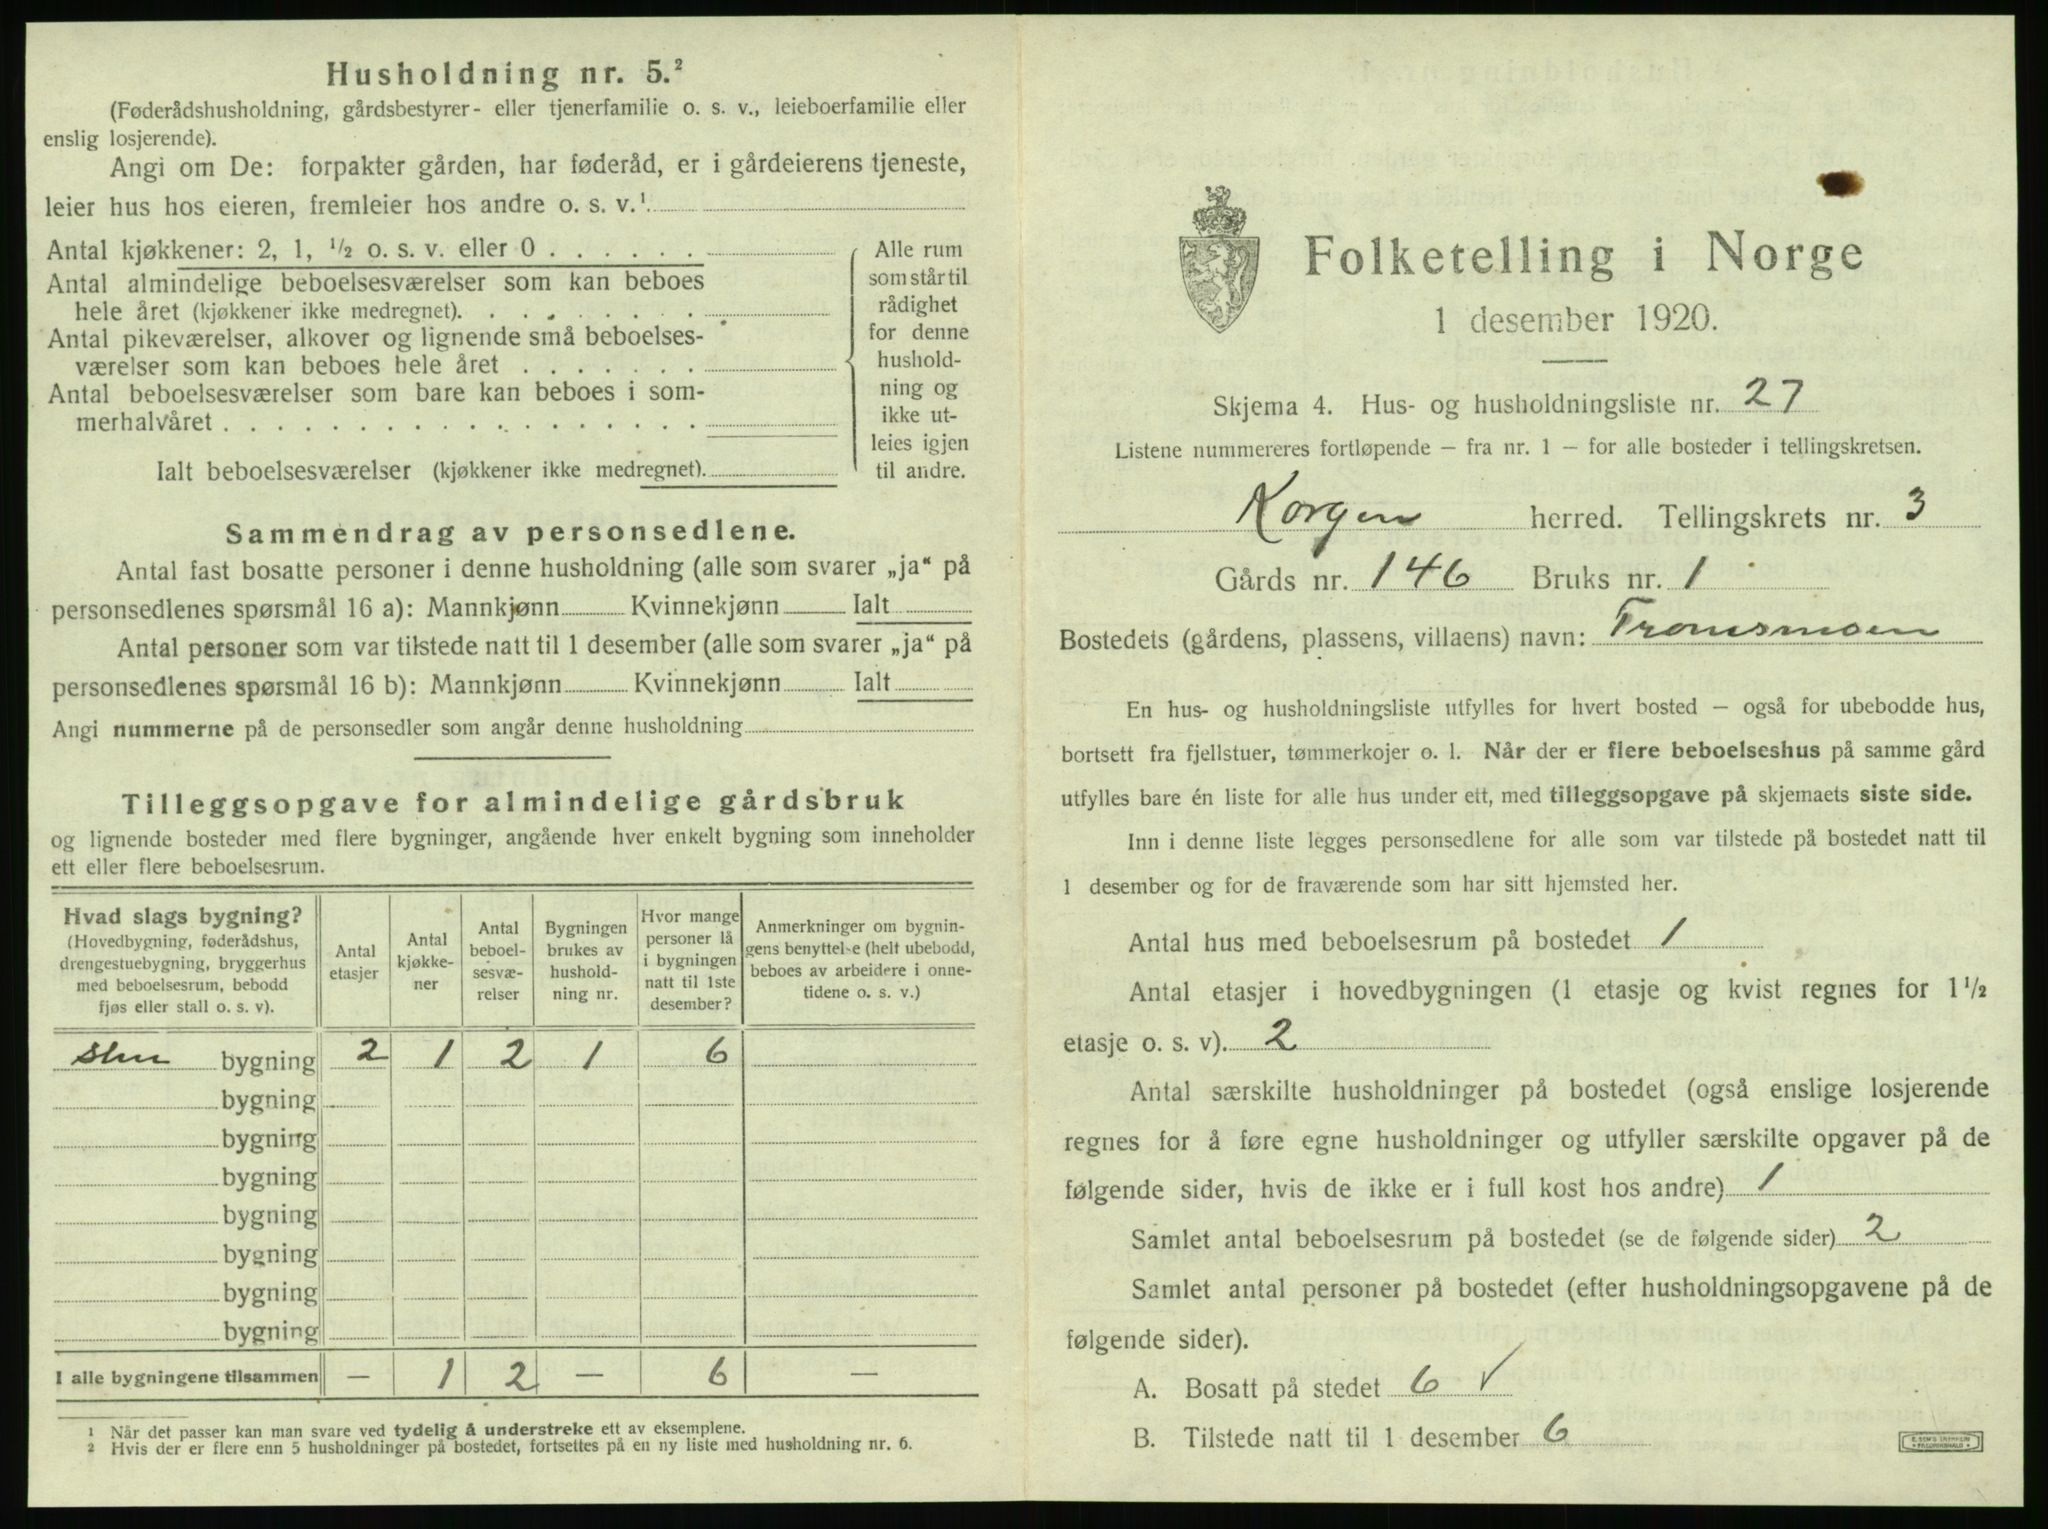 Husholdning nr. 5.²
(Føderådshusholdning, gårdsbestyrer- eller tjenerfamilie o. s. v., leieboerfamilie eller
enslig losjerende).
Angi om De: forpakter gården, har føderåd, er i gårdeierens tjeneste,
leier hus hos eieren, fremleier hos andre o. s. v.¹
Antal kjøkkener: 2, 1, ½ o. s. v. eller 0 . . . . . .
Antal almindelige beboelsesværelser som kan beboes
hele året (kjøkkener ikke medregnet). . . . . . .
Antal pikeværelser, alkover og lignende små beboelses-
værelser som kan beboes hele året . . . . . . .
Antal beboelsesværelser som bare kan beboes i som-
merhalvåret . . . . . . . . . . . . . . . . . .
Ialt beboelsesværelser (kjøkkener ikke medregnet).
Alle rum
som står til
rådighet
for denne
hushold-
ning og
ikke ut-
leies igjen
til andre.
Sammendrag av personsedlene.
Antal fast bosatte personer i denne husholdning (alle som svarer „ja“ på
personsedlenes spørsmål 16 a): Mannkjønn Kvinnekjønn Ialt
Antal personer som var tilstede natt til 1 desember (alle som svarer „ja“ på
personsedlenes spørsmål 16 b): Mannkjønn Kvinnekjønn Ialt
Angi nummerne på de personsedler som angår denne husholdning
Tilleggsopgave for almindelige gårdsbruk
og lignende bosteder med flere bygninger, angående hver enkelt bygning som inneholder
ett eller flere beboelsesrum.
Hvad slags bygning?
(Hovedbygning, føderådshus,
drengestuebygning, bryggerhus
med beboelsesrum, bebodd
fjøs eller stall o. s. v).
Antal
etasjer
Antal
kjøkke-
ner
Antal
beboel-
sesvæ-
relser
Bygningen
brukes av
hushold-
ning nr.
Hvor mange
personer lå
i bygningen
natt til 1ste
desember?
Anmerkninger om bygnin-
gens benyttelse (helt ubebodd,
beboes av arbeidere i onne-
tidene o. s. v.)
bygning 2 1 2 1 6
bygning
bygning
bygning
bygning
bygning
bygning
bygning
I alle bygningene tilsammen — 1 2 — 6 —
¹ Når det passer kan man svare ved tydelig å understreke ett av eksemplene.
² Hvis der er flere enn 5 husholdninger på bostedet, fortsettes på en ny liste med husholdning nr. 6.
Folketelling i Norge
1 desember 1920.
Skjema 4. Hus- og husholdningsliste nr. 27
Listene nummereres fortløpende — fra nr. 1 — for alle bosteder i tellingskretsen.
Korgen herred. Tellingskrets nr. 3
Gårds nr. 146 Bruks nr. 1
Bostedets (gårdens, plassens, villaens) navn: Tromsmoen
En hus- og husholdningsliste utfylles for hvert bosted — også for ubebodde hus,
bortsett fra fjellstuer, tømmerkojer o. l. Når der er flere beboelseshus på samme gård
utfylles bare én liste for alle hus under ett, med tilleggsopgave på skjemaets siste side.
Inn i denne liste legges personsedlene for alle som var tilstede på bostedet natt til
1 desember og for de fraværende som har sitt hjemsted her.
Antal hus med beboelsesrum på bostedet 1
Antal etasjer i hovedbygningen (1 etasje og kvist regnes for 1½
etasje o. s. v). 2
Antal særskilte husholdninger på bostedet (også enslige losjerende
regnes for å føre egne husholdninger og utfyller særskilte opgaver på de
følgende sider, hvis de ikke er i full kost hos andre) 1
Samlet antal beboelsesrum på bostedet (se de følgende sider) 2
Samlet antal personer på bostedet (efter husholdningsopgavene på de
følgende sider).
A. Bosatt på stedet 6 ✓
B. Tilstede natt til 1 desember 6